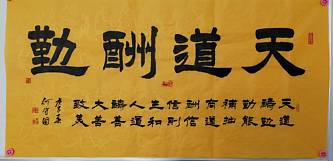 天道酬勤
天道
酬勤
勤能
補拙
商道
酬信
信則
生和
人道
酬善
大善
致美